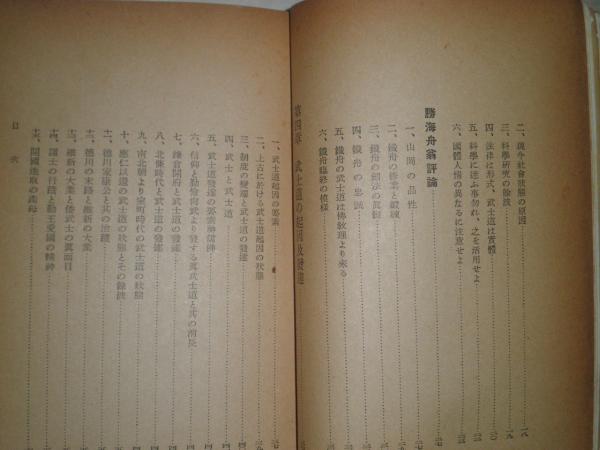 二、現今社會狀態の原因
一八
三、科學研究の餘波
一九
四、法律は形式、武士道は實體
五、科學に迷ふ事勿れ、之を活用せよ
六、國體人情の異なるに注意せよ
勝海舟翁評論
一、山岡の品性
二、鐵舟の修業と鍛練
三、鐵舟の劍法の眞髓
四、鐵舟の忠誠
五、鐵舟の武士道は佛敎理より來る
六、鐵舟臨終の模樣
第四章 武士道の起因及發達
一、武士道起因の要素
二、上古に於ける武士道起因の狀態
三、制度の變遷と武士道の發達
四、武士と武士道
五、武士道發達の要素神儒佛
六、信仰と勤儉尚武より發する眞武士道と其の消長
七、鎌倉開府と武士道の發達
八、北條時代と武士道の發達
九、南北朝より室町時代の武士道の狀態
十、應仁以還の武士道の狀態とその餘波
十一、德川家康公と其の治蹟
十二、德川の末路と維新の大業
十三、維新の大業と倭武士の眞面目
十四、諸士の行蹟と勤王愛國の精神
十五、開國進取の
目次